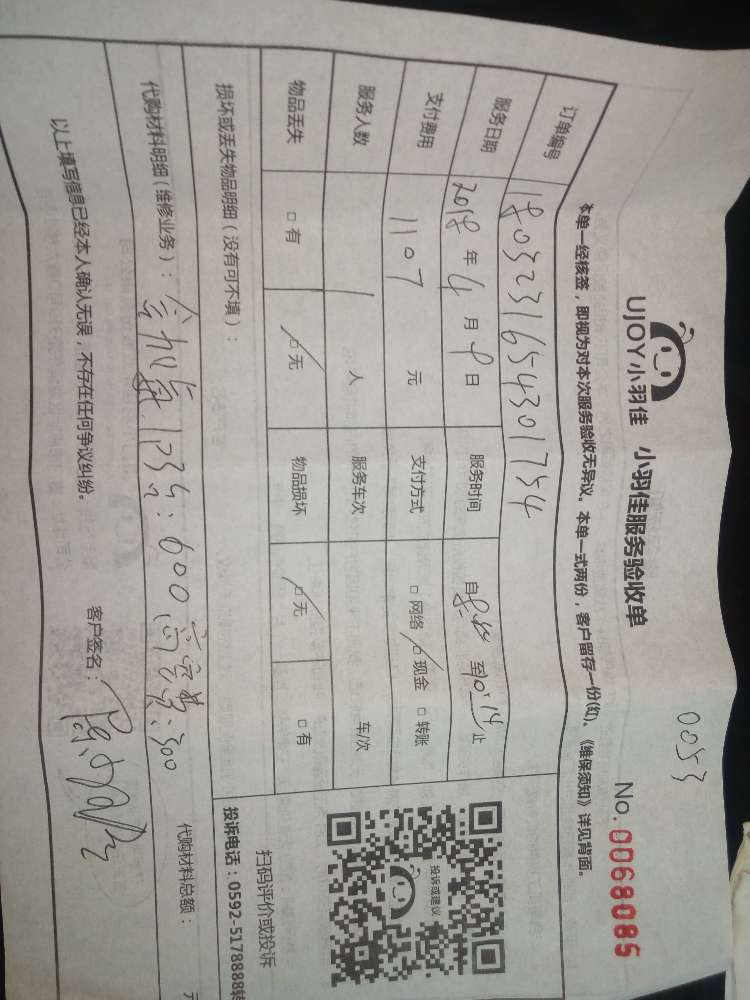 0053
UJOY小羽佳 小羽佳服务验收单 No.0068085
本单一经核签，即视为对本次服务验收无异议。本单一式两份，客户留存一份(红)。《维保须知》详见背面。
订单编号 1803231654301754
服务日期 2018年4月9日 服务时间 自 至10:14止
支付费用 1107 元 支付方式 □网络 □现金 □转账
服务人数 1人 服务车次 车/次
物品丢失 □有 □无 物品损坏 □无 □有
损坏或丢失物品明细（没有可不填）：
代购材料明细（维修业务）： 600 高空费:300 代购材料总额： 元
以上填写信息已经本人确认无误，不存在任何争议纠纷。 客户签名：
投诉或建议
扫码评价或投诉
投诉电话：0592-5178888转